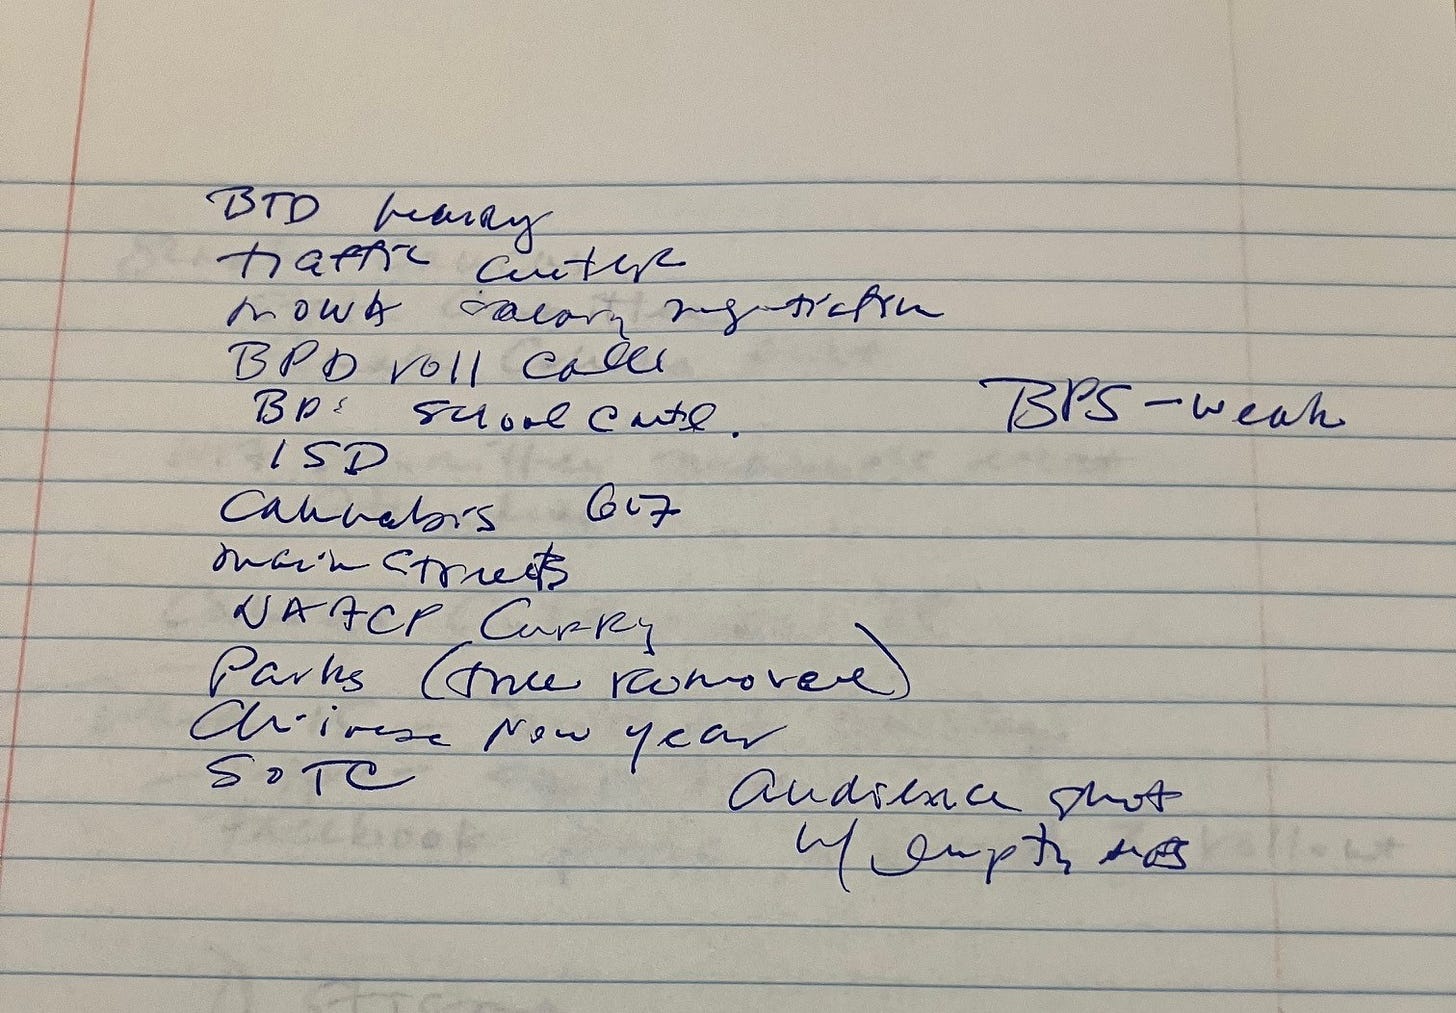 BTD hearing
traffic center
MOWA salary negotiation
BPD roll call
BPS School Cmte.
BPS - weak
ISD
Cannabis
main Streets
NAACP Curry
Parks (tree removal)
Chinese New year
SOTC
Audience shot
w/ empty